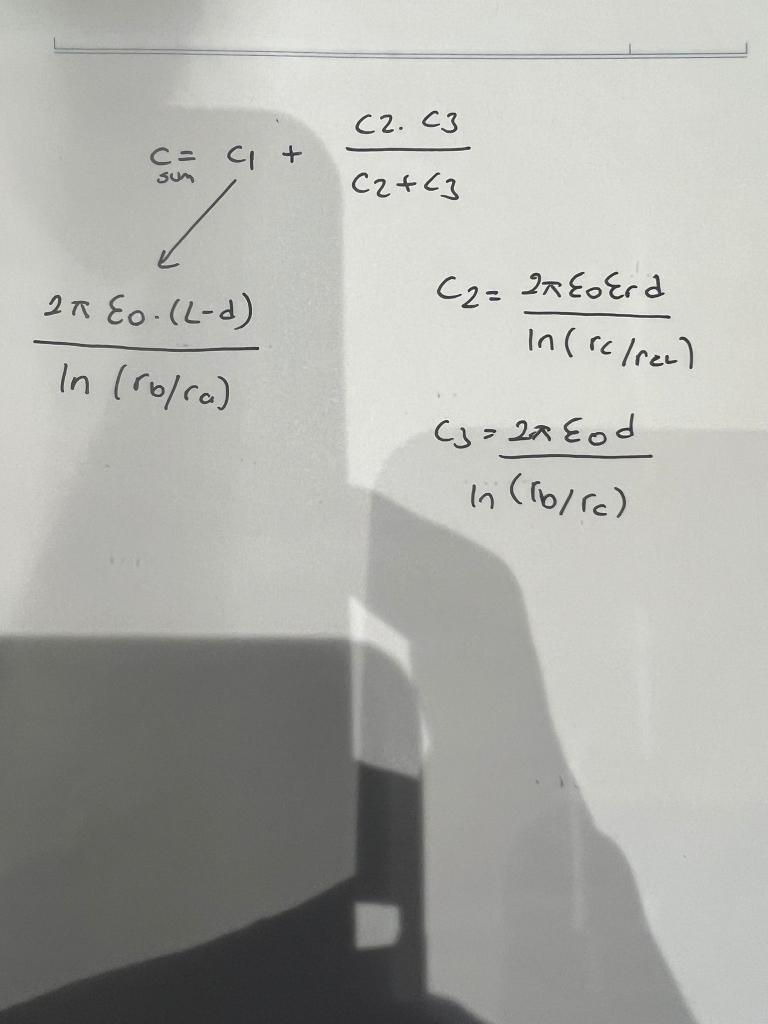 C sum = C1 + C2. C3 / C2+C3
2π ε0 . (L-d) / ln (rb/ra)
C2 = 2π ε0 εr d / ln( rc /
C3 = 2π ε0 d / ln (rb/rc)